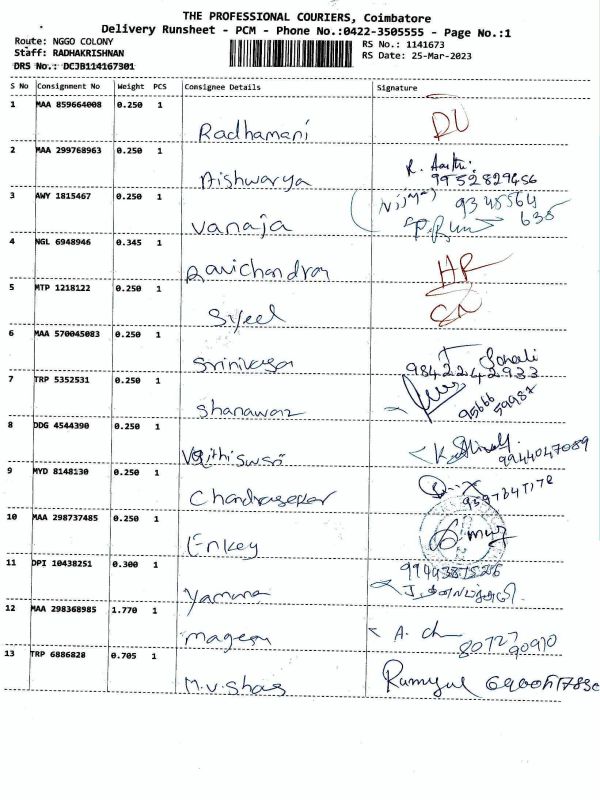 THE PROFESSIONAL COURIERS, Coimbatore
Delivery Runsheet - PCM - Phone No.:0422-3505555 - Page No.:1
Route: NGGO COLONY
Staff: RADHAKRISHNAN
DRS No.: DCJB114167301
RS No.: 1141673
RS Date: 25-Mar-2023
S No Consignment No Weight PCS Consignee Details Signature
1 MAA 859664008 0.250 1
Radhamani
2 MAA 299768963 0.250 1
Aishwarya R. Aarthi
9952829456
3 AWY 1815467 0.250 1
Vanaja 9345564
635
4 NGL 6948946 0.345 1
Ravichandran
5 MTP 1218122 0.250 1
6 MAA 570045083 0.250 1
Srinivasa Sonali
9842242933
7 TRP 5352531 0.250 1
Shanawaz 95666
59987
8 DDG 4544390 0.250 1
9944047089
9 MYD 8148130 0.250 1
Chandrasekar
10 MAA 298737485 0.250 1
Enkey
11 DPI 10438251 0.300 1
Yamuna
12 MAA 298368985 1.770 1
Magesh 80727
90910
13 TRP 6886828 0.705 1
M.V.Shas